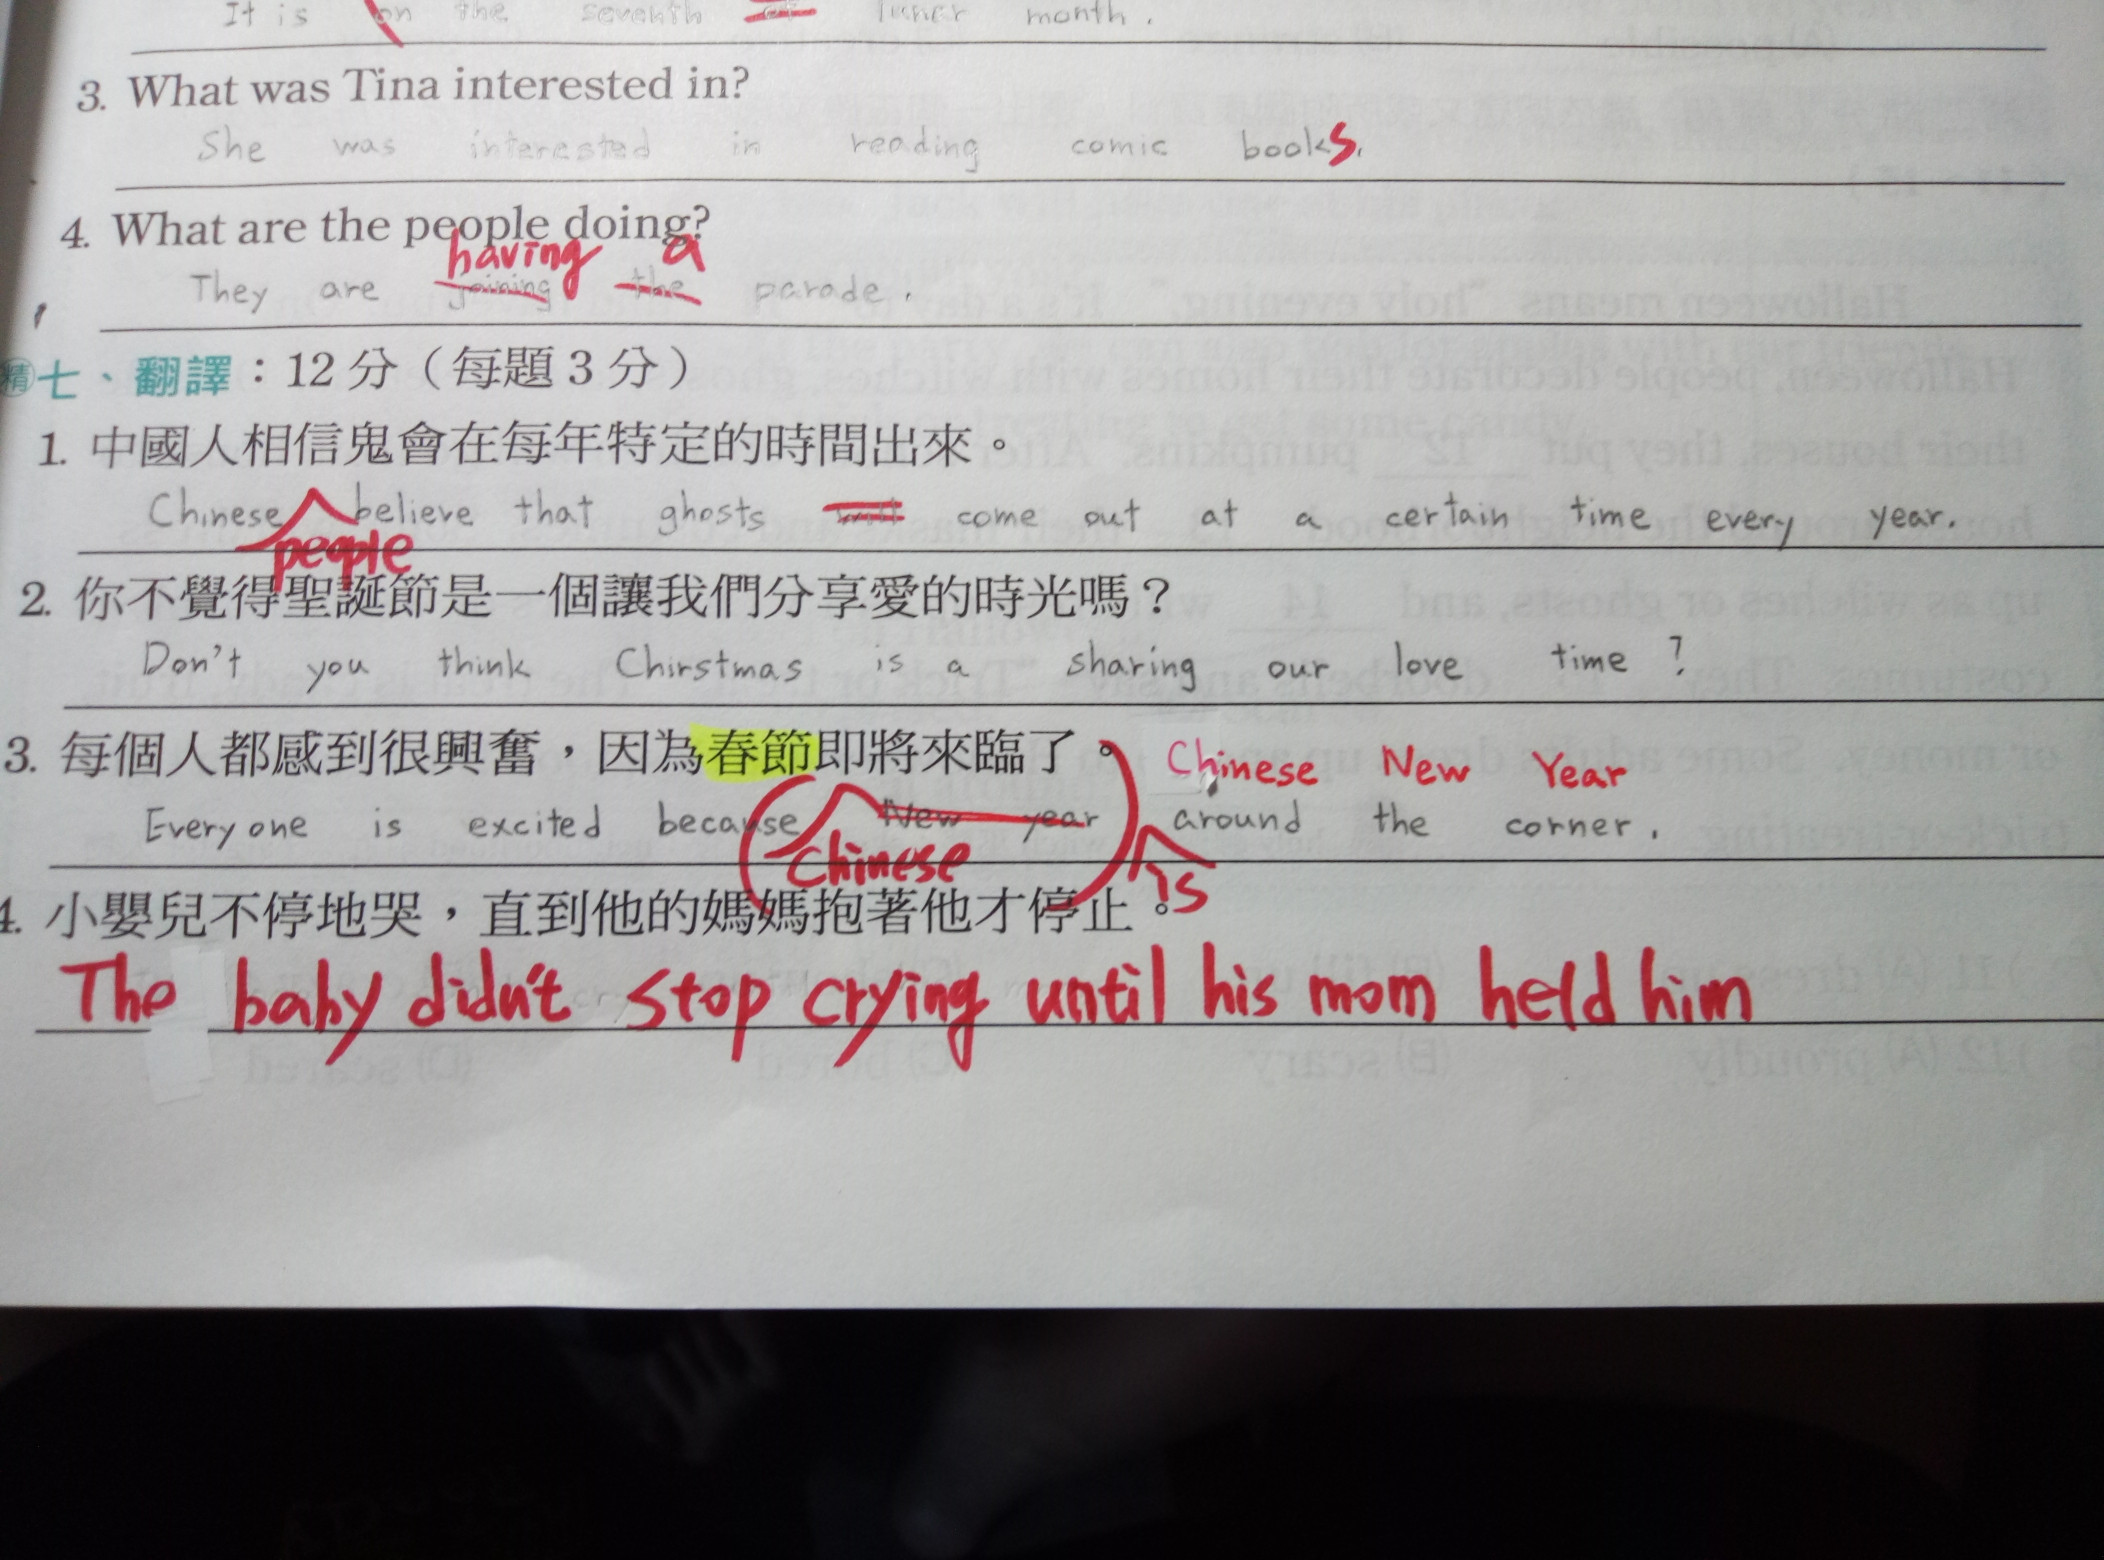 It is on the seventh of lunar month.
3. What was Tina interested in?
She was interested in reading comic books.
4. What are the people doing?
having a
They are joining the parade.
精 七、翻譯：12分（每題3分）
1. 中國人相信鬼會在每年特定的時間出來。
Chinese believe that ghosts will come out at a certain time every year.
people
2. 你不覺得聖誕節是一個讓我們分享愛的時光嗎？
Don't you think Chirstmas is a sharing our love time?
3. 每個人都感到很興奮，因為春節即將來臨了。
Chinese New Year
Everyone is excited because New year around the corner.
Chinese is
4. 小嬰兒不停地哭，直到他的媽媽抱著他才停止。
The baby didn't stop crying until his mom held him